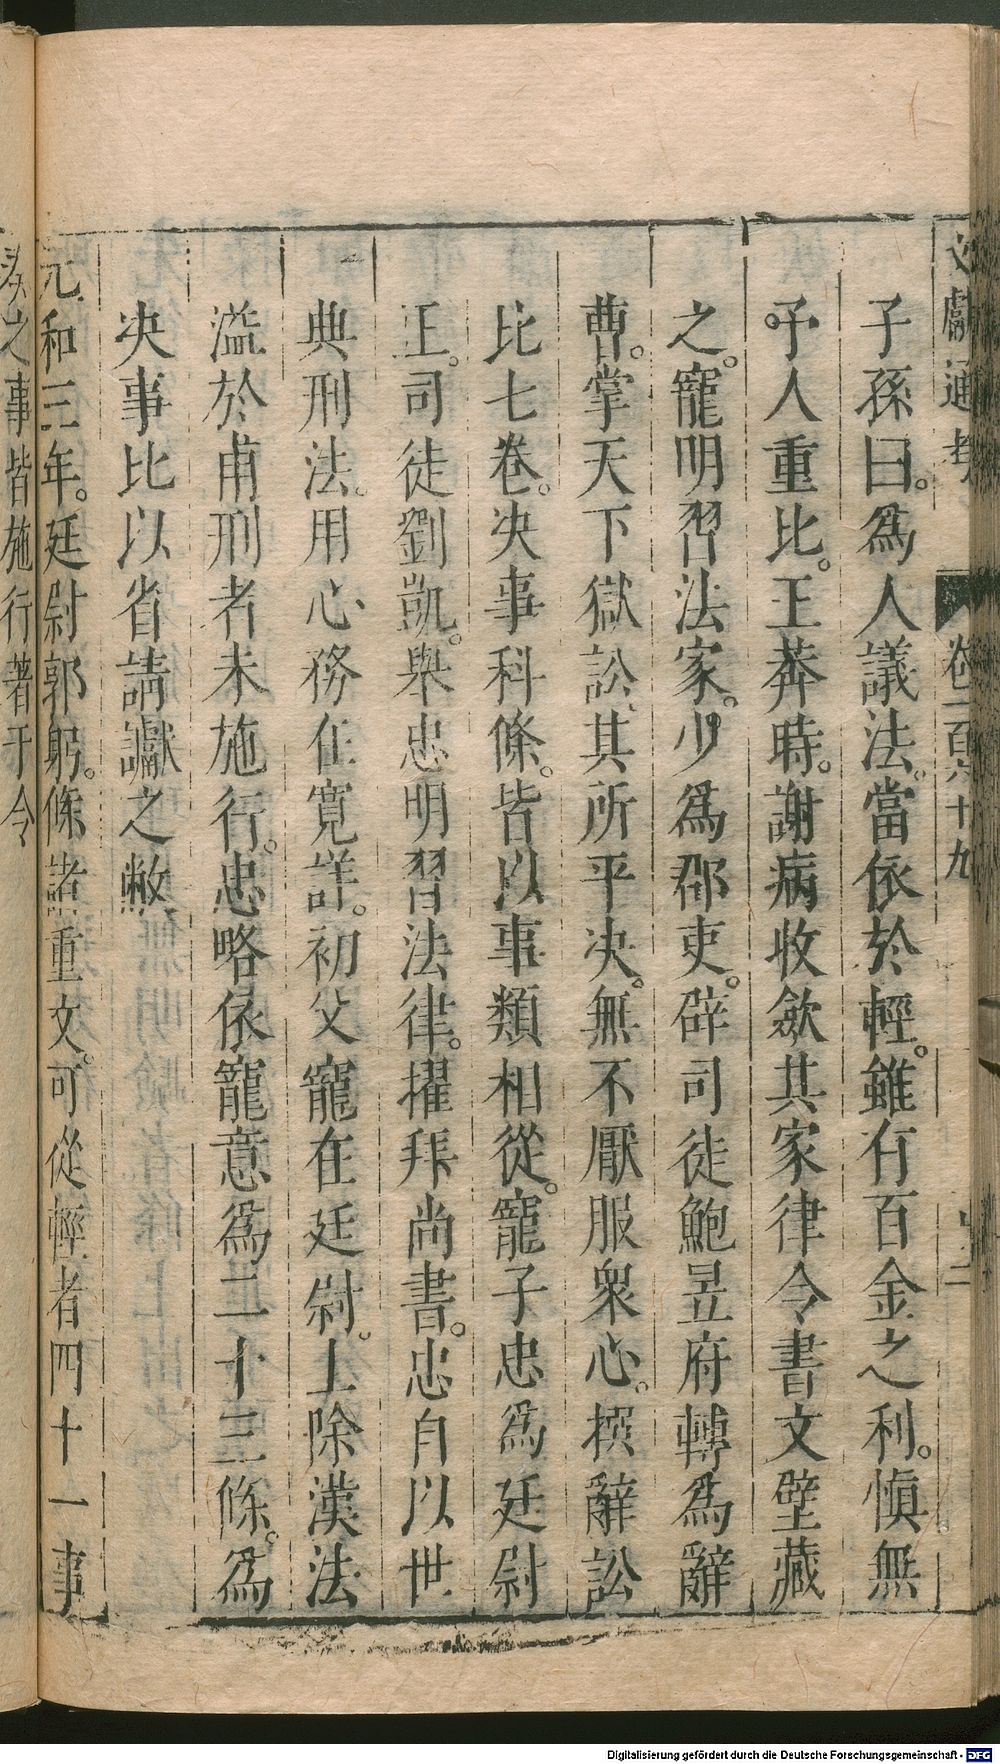 文獻通考 卷一百六十九
子孫曰。爲人議法。當依於輕。雖有百金之利。愼無
予人重比。王莽時。謝病收斂其家律令書文壁藏
之。寵明習法家。少爲郡吏。辟司徒鮑昱府轉爲辭
曹。掌天下獄訟、其所平决。無不厭服衆心。撰辭訟
比七卷。决事科條。皆以事類相從。寵子忠爲廷尉
正。司徒劉凱。舉忠明習法律。擢拜尚書。忠自以世
典刑法。用心務在寬詳。初父寵在廷尉。上除漢法
溢於甫刑者未施行。忠略依寵意爲二十三條。爲
决事比以省請讞之敝
元和三年。廷尉郭躬。條諸重文。可從輕者四十一事
奏之事皆施行著于令
Digitalisierung gefördert durch die Deutsche Forschungsgemeinschaft - DFG